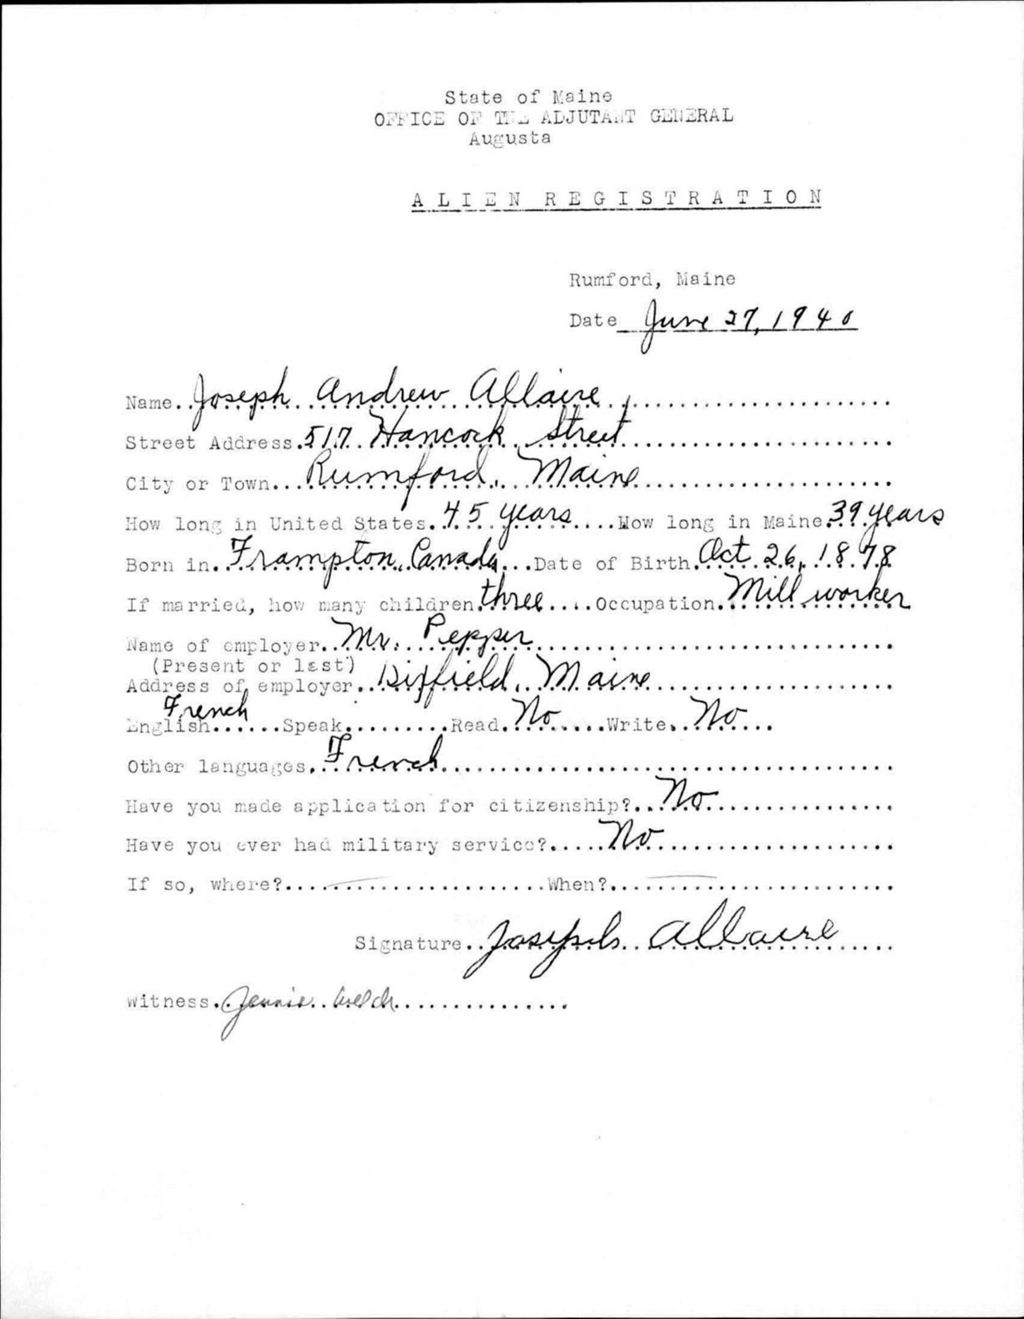 State of Maine
OFFICE OF THE ADJUTANT GENERAL
Augusta
ALIEN REGISTRATION
Rumford, Maine
Date June 27, 1940
Name..Joseph Andrew Allaire
Street Address.517 Hancock Street
City or Town...Rumford, Maine
How long in United States.45 years....How long in Maine.39 years
Born in.Frampton, Canada...Date of Birth.Oct. 26, 1878
If married, how many children.three....Occupation.Mill worker
Name of employer.Mr. Pepper
(Present or last)
Address of employer..Dixfield, Maine
French
English......Speak.........Read.No......Write..No...
Other languages.French
Have you made application for citizenship?..No
Have you ever had military service?.....No
If so, where?.......................When?.......................
Signature..Joseph Allaire.....
Witness.Jennie Welch